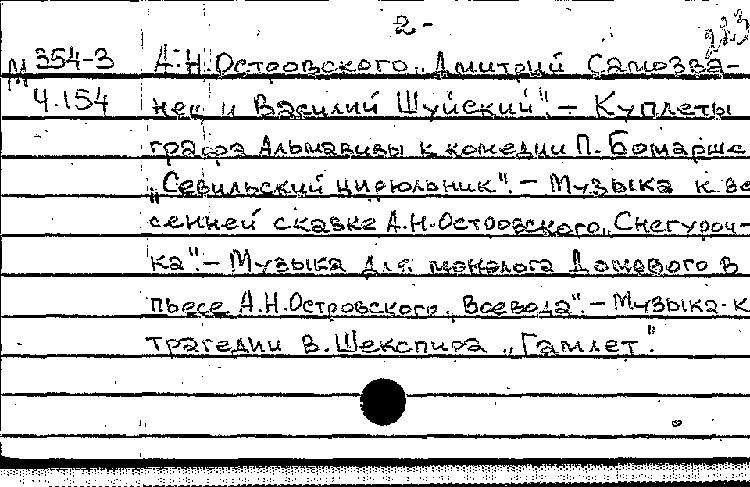 2-
223
М 354-3 А.Н.Островского „Дмитрий Самозва-
4.154 нец и Василий Шуйский". – Куплеты
графа Альмавивы к комедии П. Бомарше
„Севильский цирюльник". – Музыка к ве
сенней сказке А.Н.Островского „Снегуроч-
ка". – Музыка для монолога Домового в
пьесе А.Н.Островского „Воевода". – Музыка к
трагедии В. Шекспира „Гамлет".